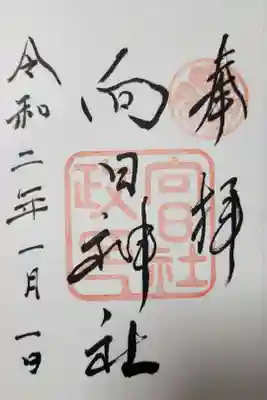 奉拝
向日神社
令和二年一月一日